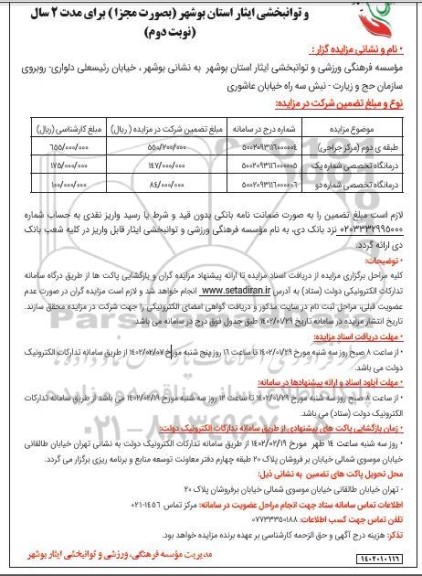 و توانبخشی ایثار استان بوشهر (بصورت مجزا) برای مدت ۲ سال
(نوبت دوم)
• نام و نشانی مزایده گزار:
مؤسسه فرهنگی ورزشی و توانبخشی ایثار استان بوشهر به نشانی بوشهر ، خیابان رئیسعلی دلواری- روبروی
سازمان حج و زیارت - نبش سه راه خیابان عاشوری
نوع و مبلغ تضمین شرکت در مزایده:
موضوع مزایده شماره درج در سامانه مبلغ تضمین شرکت در مزایده ( ریال) مبلغ کارشناسی (ریال)
طبقه ی دوم (مرکز جراحی) ۵۰۰۲۰۹۳۱۱۶۰۰۰۰۰۴ ۵۵۰/۲۰۰/۰۰۰ ۶۵۵/۰۰۰/۰۰۰
درمانگاه تخصصی شماره یک ۵۰۰۲۰۹۳۱۱۶۰۰۰۰۰۵ ۱۴۷/۰۰۰/۰۰۰ ۱۷۵/۰۰۰/۰۰۰
درمانگاه تخصصی شماره دو ۵۰۰۲۰۹۳۱۱۶۰۰۰۰۰۶ ۸۴/۰۰۰/۰۰۰ ۱۰۰/۰۰۰/۰۰۰
لازم است مبلغ تضمین را به صورت ضمانت نامه بانکی بدون قید و شرط یا رسید واریز نقدی به حساب شماره
۰۲۰۳۳۳۲۹۹۵۰۰۰ نزد بانک دی، به نام مؤسسه فرهنگی ورزشی و توانبخشی ایثار قابل واریز در کلیه شعب بانک
دی ارائه گردد.
• توضیحات:
کلیه مراحل برگزاری مزایده از دریافت اسناد مزایده تا ارائه پیشنهاد مزایده گران و بازگشایی پاکت ها از طریق درگاه سامانه
تدارکات الکترونیکی دولت (ستاد) به آدرس www.setadiran.ir انجام خواهد شد و لازم است مزایده گران در صورت عدم
عضویت قبلی، مراحل ثبت نام در سایت مذکور و دریافت گواهی امضای الکترونیکی را جهت شرکت در مزایده محقق سازند.
تاریخ انتشار مزایده در سامانه تاریخ ۱۴۰۲/۰۱/۲۹ طبق جدول فوق درج در سامانه می باشد.
• مهلت دریافت اسناد مزایده:
• از ساعت ۸ صبح روز سه شنبه مورخ ۱۴۰۲/۰۱/۲۹ تا ساعت ۱۶ روز پنج شنبه مورخ ۱۴۰۲/۰۲/۰۷ از طریق سامانه تدارکات الکترونیک
دولت می باشد.
• مهلت آپلود اسناد و ارائه پیشنهادها در سامانه:
• از ساعت ۸ صبح روز سه شنبه مورخ ۱۴۰۲/۰۱/۲۹ تا ساعت ۱۲ روز سه شنبه مورخ ۱۴۰۲/۰۲/۱۹ می باشد از طریق سامانه تدارکات
الکترونیک دولت (ستاد) می باشد.
• زمان بازگشایی پاکت های پیشنهادی از طریق سامانه تدارکات الکترونیک دولت:
• روز سه شنبه ساعت ۱۴ ظهر مورخ ۱۴۰۲/۰۲/۱۹ از طریق سامانه تدارکات الکترونیک دولت به نشانی تهران خیابان طالقانی
خیابان موسوی شمالی خیابان بر فروشان پلاک ۲۰ طبقه چهارم دفتر معاونت توسعه منابع و برنامه ریزی برگزار می گردد.
محل تحویل پاکت های تضمین به نشانی ذیل:
- تهران خیابان طالقانی خیابان موسوی شمالی خیابان برفروشان پلاک ۲۰
اطلاعات تماس سامانه ستاد جهت انجام مراحل عضویت در سامانه: مرکز تماس ۱۴۵۶-۰۲۱
تلفن تماس جهت کسب اطلاعات: ۰۷۷۳۳۳۵۰۱۸۸
تذکر: هزینه درج آگهی و حق الزحمه کارشناسی بر عهده برنده مزایده خواهد بود.
مدیریت مؤسسه فرهنگی، ورزشی و توانبخشی ایثار بوشهر
۱۴۰۲۰۱۰۱۱۶
۰۲۱-۸۸۳۴۹۶۷۰